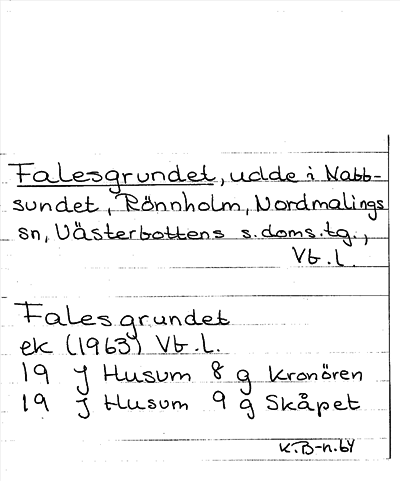 Falesgrundet, udde i Nabb-
sundet, Rönnholm, Nordmalings
sn, Västerbottens s.doms.tg.,
Vb.l.
Falesgrundet
ek (1963) Vb.l.
19 J Husum 8 g Kronören
19 J Husum 9 g Skåpet
K.B-n.64